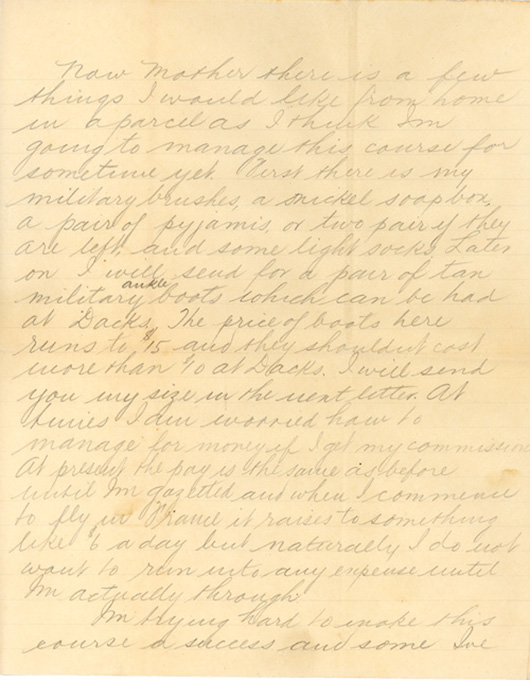 Now Mother there is a few
things I would like from home
in a parcel as I think I'm
going to manage this course for
sometime yet. First there is my
military brushes, a nickel soapbox,
a pair of pyjamis, or two pair if they
are left, and some light socks. Later
on I will send for a pair of tan
military ankle boots which can be had
at Dacks. The price of boots here
runs to $15 and they shouldn't cost
more than $10 at Dacks. I will send
you my size in the next letter. At
times I am worried how to
manage for money if I get my commission
At present the pay is the same as before
until I'm gazetted and when I commence
to fly in France it raises to something
like $6 a day but naturally I do not
want to run into any expense until
I'm actually through.
I'm trying hard to make this
course a success and some I've